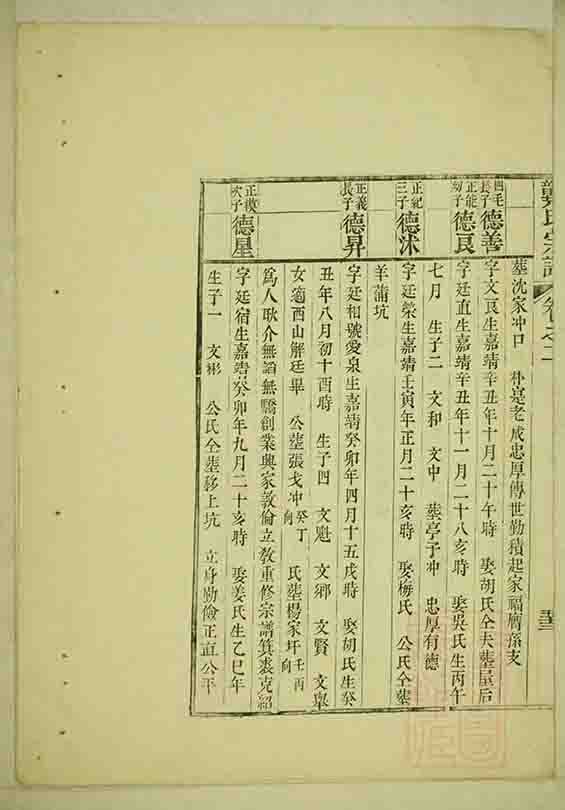 氏宗譜 卷之二
墓沈家冲口 朴寔老成忠厚傳世勤積起家福廕孫支
四毛長子 德善 字文良生嘉靖辛丑年十月二十午時 娶胡氏仝夫墓屋后
正能幼子 德良 字廷直生嘉靖辛丑年十一月二十八亥時 娶吳氏生丙午
七月 生子二 文和 文中 墓亭子冲 忠厚有德
正紀三子 德沭 字廷榮生嘉靖壬寅年正月二十亥時 娶梅氏 公氏仝墓
羊蒲坑
正義長子 德昇 字廷相號愛泉生嘉靖癸卯年四月十五戌時 娶胡氏生癸
丑年八月初十酉時 生子四 文魁 文鄉 文賢 文舉
女適西山解廷畢 公墓張戈冲癸丁向 氏墓楊家圩壬丙向
為人耿介無謟無驕創業興家敦倫立教重修宗譜箕裘克紹
正模次子 德星 字廷宿生嘉靖癸卯年九月二十亥時 娶姜氏生乙巳年
生子一 文彬 公氏仝墓移上坑 立身勤儉正直公平